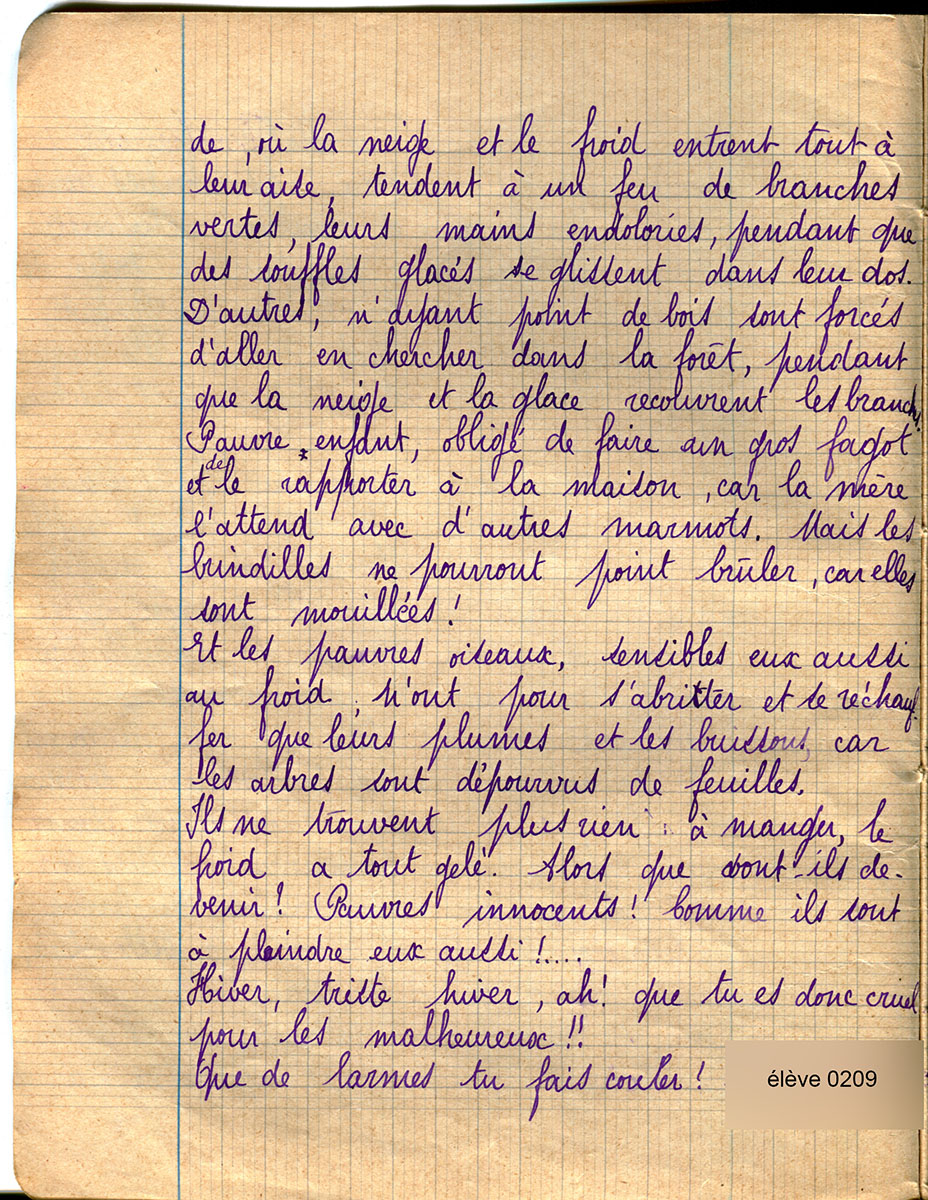 de, où la neige et le froid entrent tout à
leur aise, tendent à un feu de branches
vertes, leurs mains endolories, pendant que
des souffles glacés se glissent dans leur dos.
D'autres, n'ayant point de bois sont forcés
d'aller en chercher dans la forêt, pendant
que la neige et la glace recouvrent les branch.
Pauvre enfant, obligé de faire un gros fagot
et de le rapporter à la maison, car la mère
l'attend avec d'autres marmots. Mais les
brindilles ne pourront point brûler, car elles
sont mouillées !
Et les pauvres oiseaux, sensibles eux aussi
au froid, n'ont pour s'abriter et se réchauf-
fer que leurs plumes et les buissons, car
les arbres sont dépourvus de feuilles.
Ils ne trouvent plus rien à manger, le
froid a tout gelé. Alors que vont-ils de-
venir ! Pauvres innocents ! Comme ils sont
à plaindre eux aussi !....
Hiver, triste hiver, ah! que tu es donc cruel
pour les malheureux !!
Que de larmes tu fais couler !
élève 0209